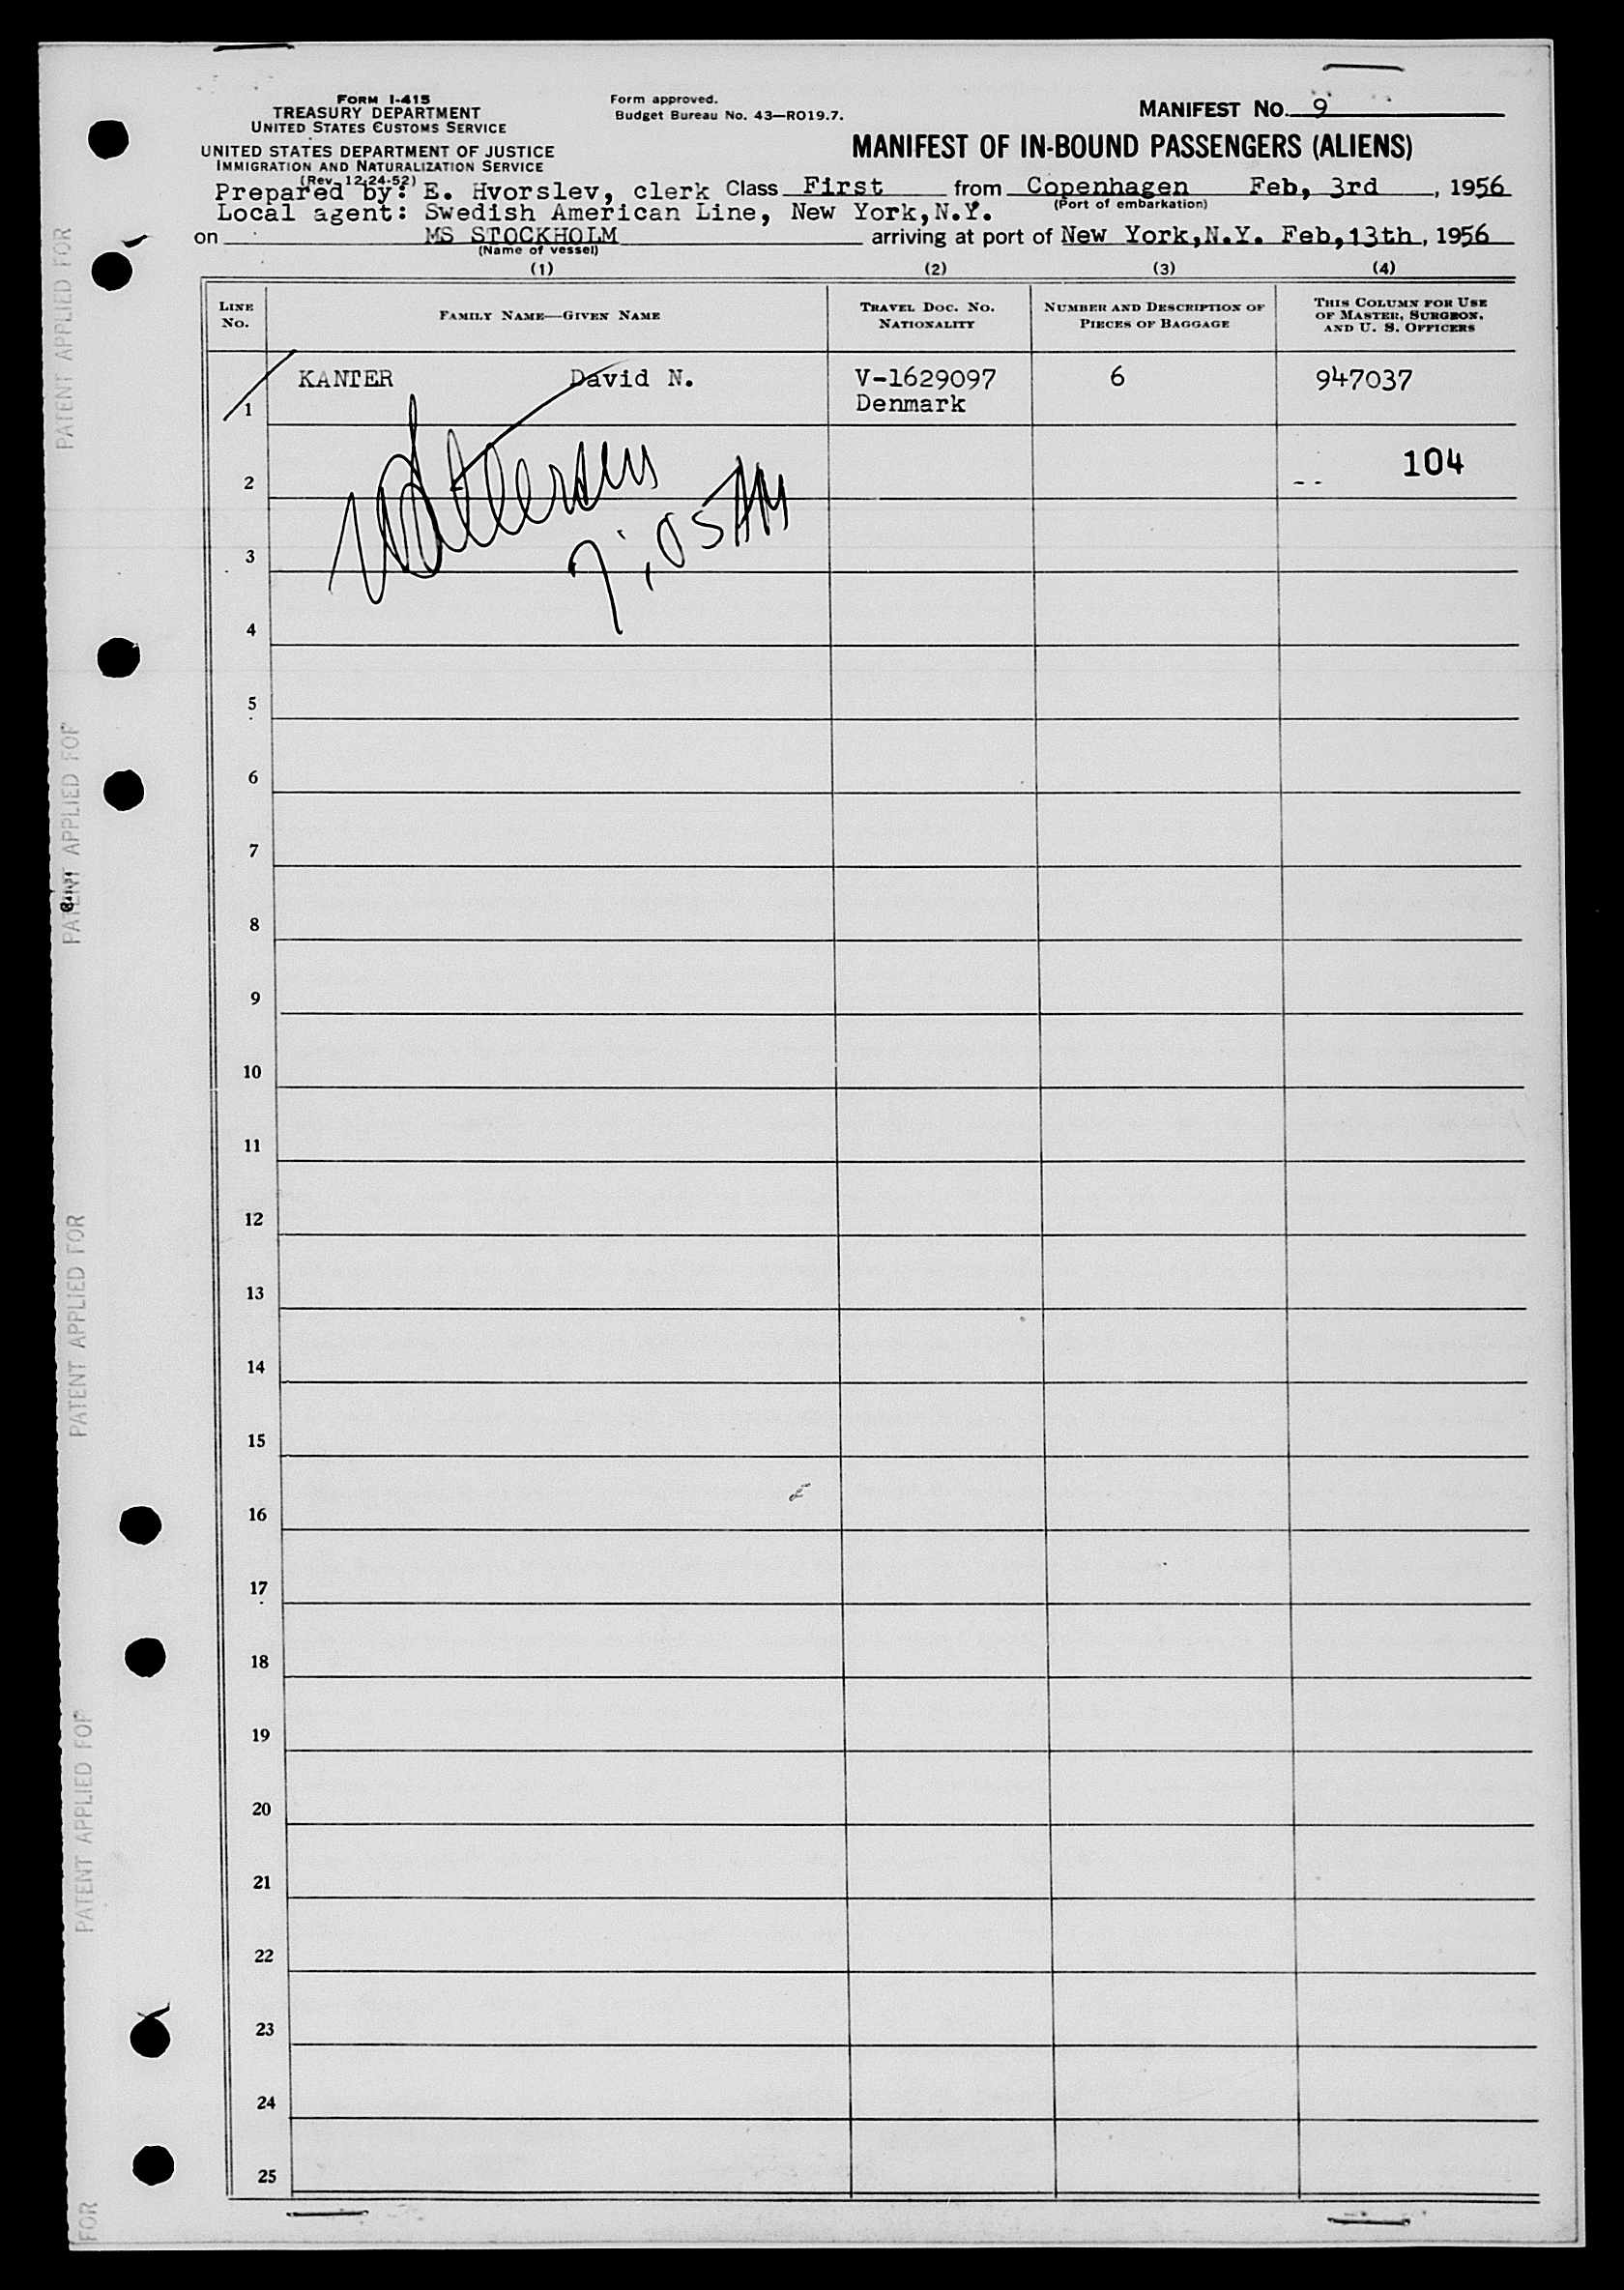 FORM I-415
TREASURY DEPARTMENT
UNITED STATES CUSTOMS SERVICE
UNITED STATES DEPARTMENT OF JUSTICE
IMMIGRATION AND NATURALIZATION SERVICE
(Rev. 12-24-52)
Form approved.
Budget Bureau No. 43—RO19.7.
MANIFEST NO. 9
MANIFEST OF IN-BOUND PASSENGERS (ALIENS)
Prepared by: E. Hvorslev, clerk Class First from Copenhagen Feb, 3rd, 1956
(Port of embarkation)
Local agent: Swedish American Line, New York,N.Y.
on MS STOCKHOLM arriving at port of New York,N.Y. Feb,13th, 1956
(Name of vessel)
(1) (2) (3) (4)
LINE NO.
FAMILY NAME—GIVEN NAME
TRAVEL DOC. NO. NATIONALITY
NUMBER AND DESCRIPTION OF PIECES OF BAGGAGE
THIS COLUMN FOR USE OF MASTER, SURGEON, AND U. S. OFFICERS
1 KANTER David N. V-1629097 6 947037
Denmark
2 104
7:05 AM
3
4
5
6
7
8
9
10
11
12
13
14
15
16
17
18
19
20
21
22
23
24
25
PATENT APPLIED FOR
PATENT APPLIED FOR
PATENT APPLIED FOR
PATENT APPLIED FOR
FOR